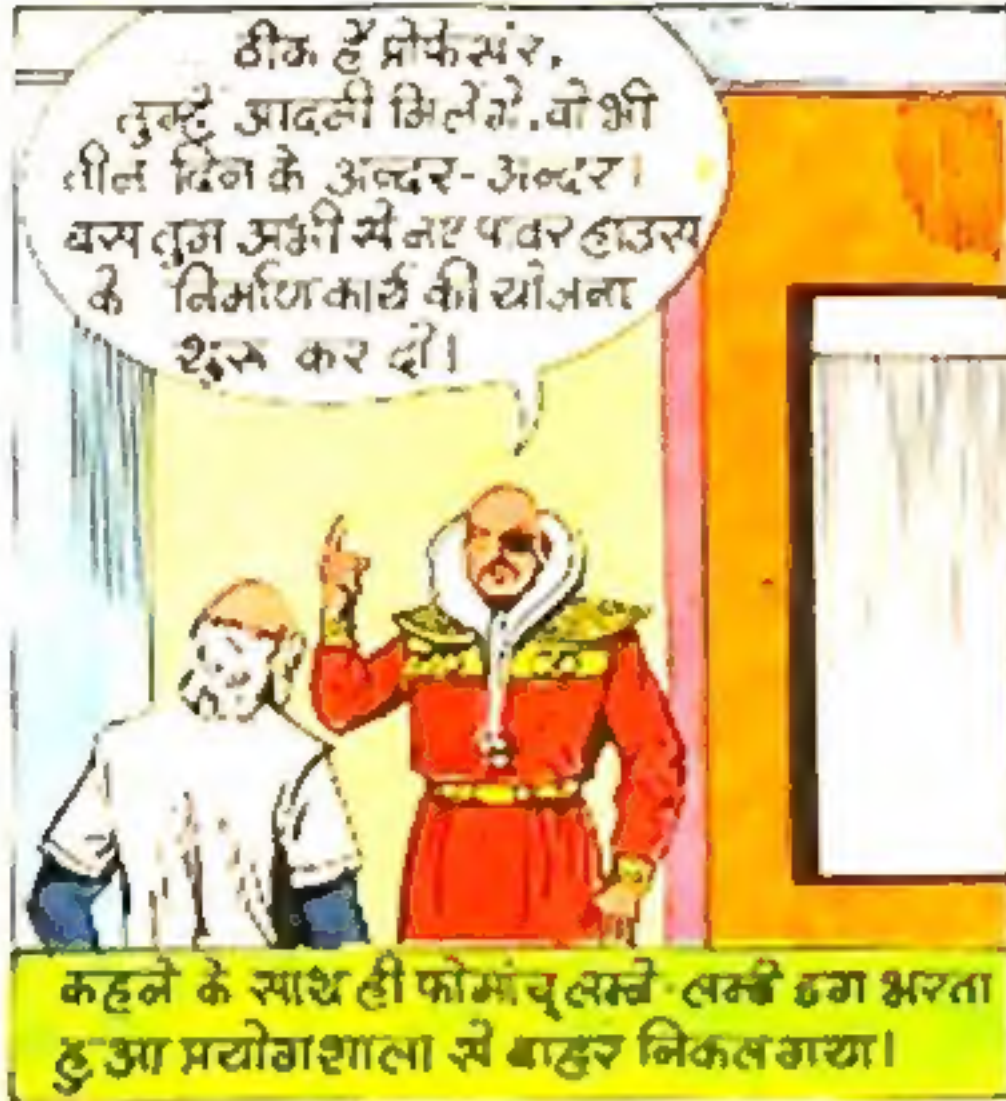 ठीक है प्रोफेसर,
तुम्हें आदमी मिलेंगे, वो भी
तीन दिन के अन्दर-अन्दर।
बस तुम अभी से नए पावर हाउस
के निर्माण कार्य की योजना
शुरू कर दो।
कहने के साथ ही फोमांचू लम्बे-लम्बे डग भरता
हुआ प्रयोगशाला से बाहर निकल गया।